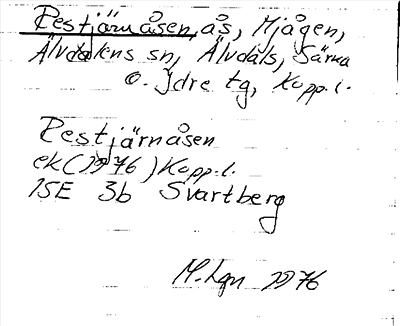 Pestjärnåsen, ås, Mjågen,
Älvdalens sn, Älvdals, Särna
o. Idre tg, Kopp. l.
Pestjärnåsen
ek (1976) Kopp. l.
15E 3b Svartberg
M. Lgn 1976